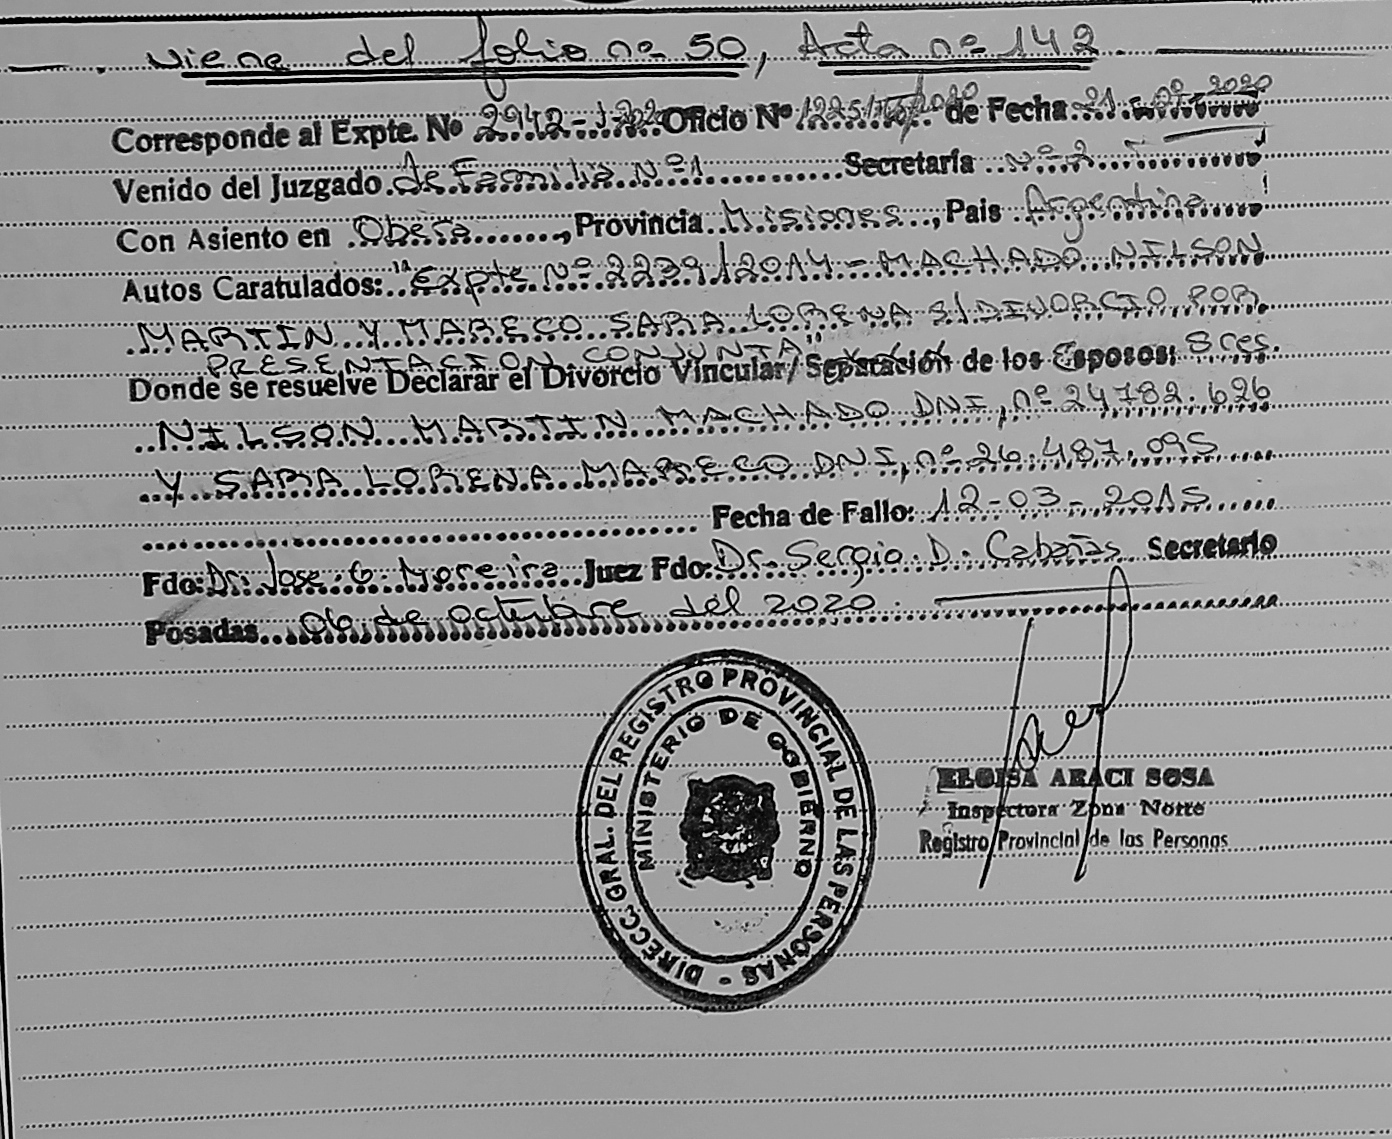 Viene del folio nº 50, Acta nº 142.
Corresponde al Expte. Nº 2942-J-202 Oficio Nº 1225/15/2020 de Fecha 21-09-2020
Venido del Juzgado de Familia Nº 1 Secretaría Nº 2
Con Asiento en Oberá, Provincia Misiones, Pais Argentina
Autos Caratulados: "Expte Nº 2239/2014 - MACHADO NILSON
MARTIN Y MARECO SARA LORENA S/DIVORCIO POR
PRESENTACION CONJUNTA"
Donde se resuelve Declarar el Divorcio Vincular/Separación de los Esposos: Sres.
NILSON MARTIN MACHADO DNI, nº 24.782.626
Y SARA LORENA MARECO DNI, nº 26.487.095
Fecha de Fallo: 12-03-2015
Fdo: Dr. Jose G. Moreira Juez Fdo: Dr. Sergio D. Cabañas Secretario
Posadas 06 de octubre del 2020.
DIRECC. GRAL. DEL REGISTRO PROVINCIAL DE LAS PERSONAS -
MINISTERIO DE GOBIERNO
ELOISA ARACI SOSA
Inspectora Zona Norte
Registro Provincial de las Personas